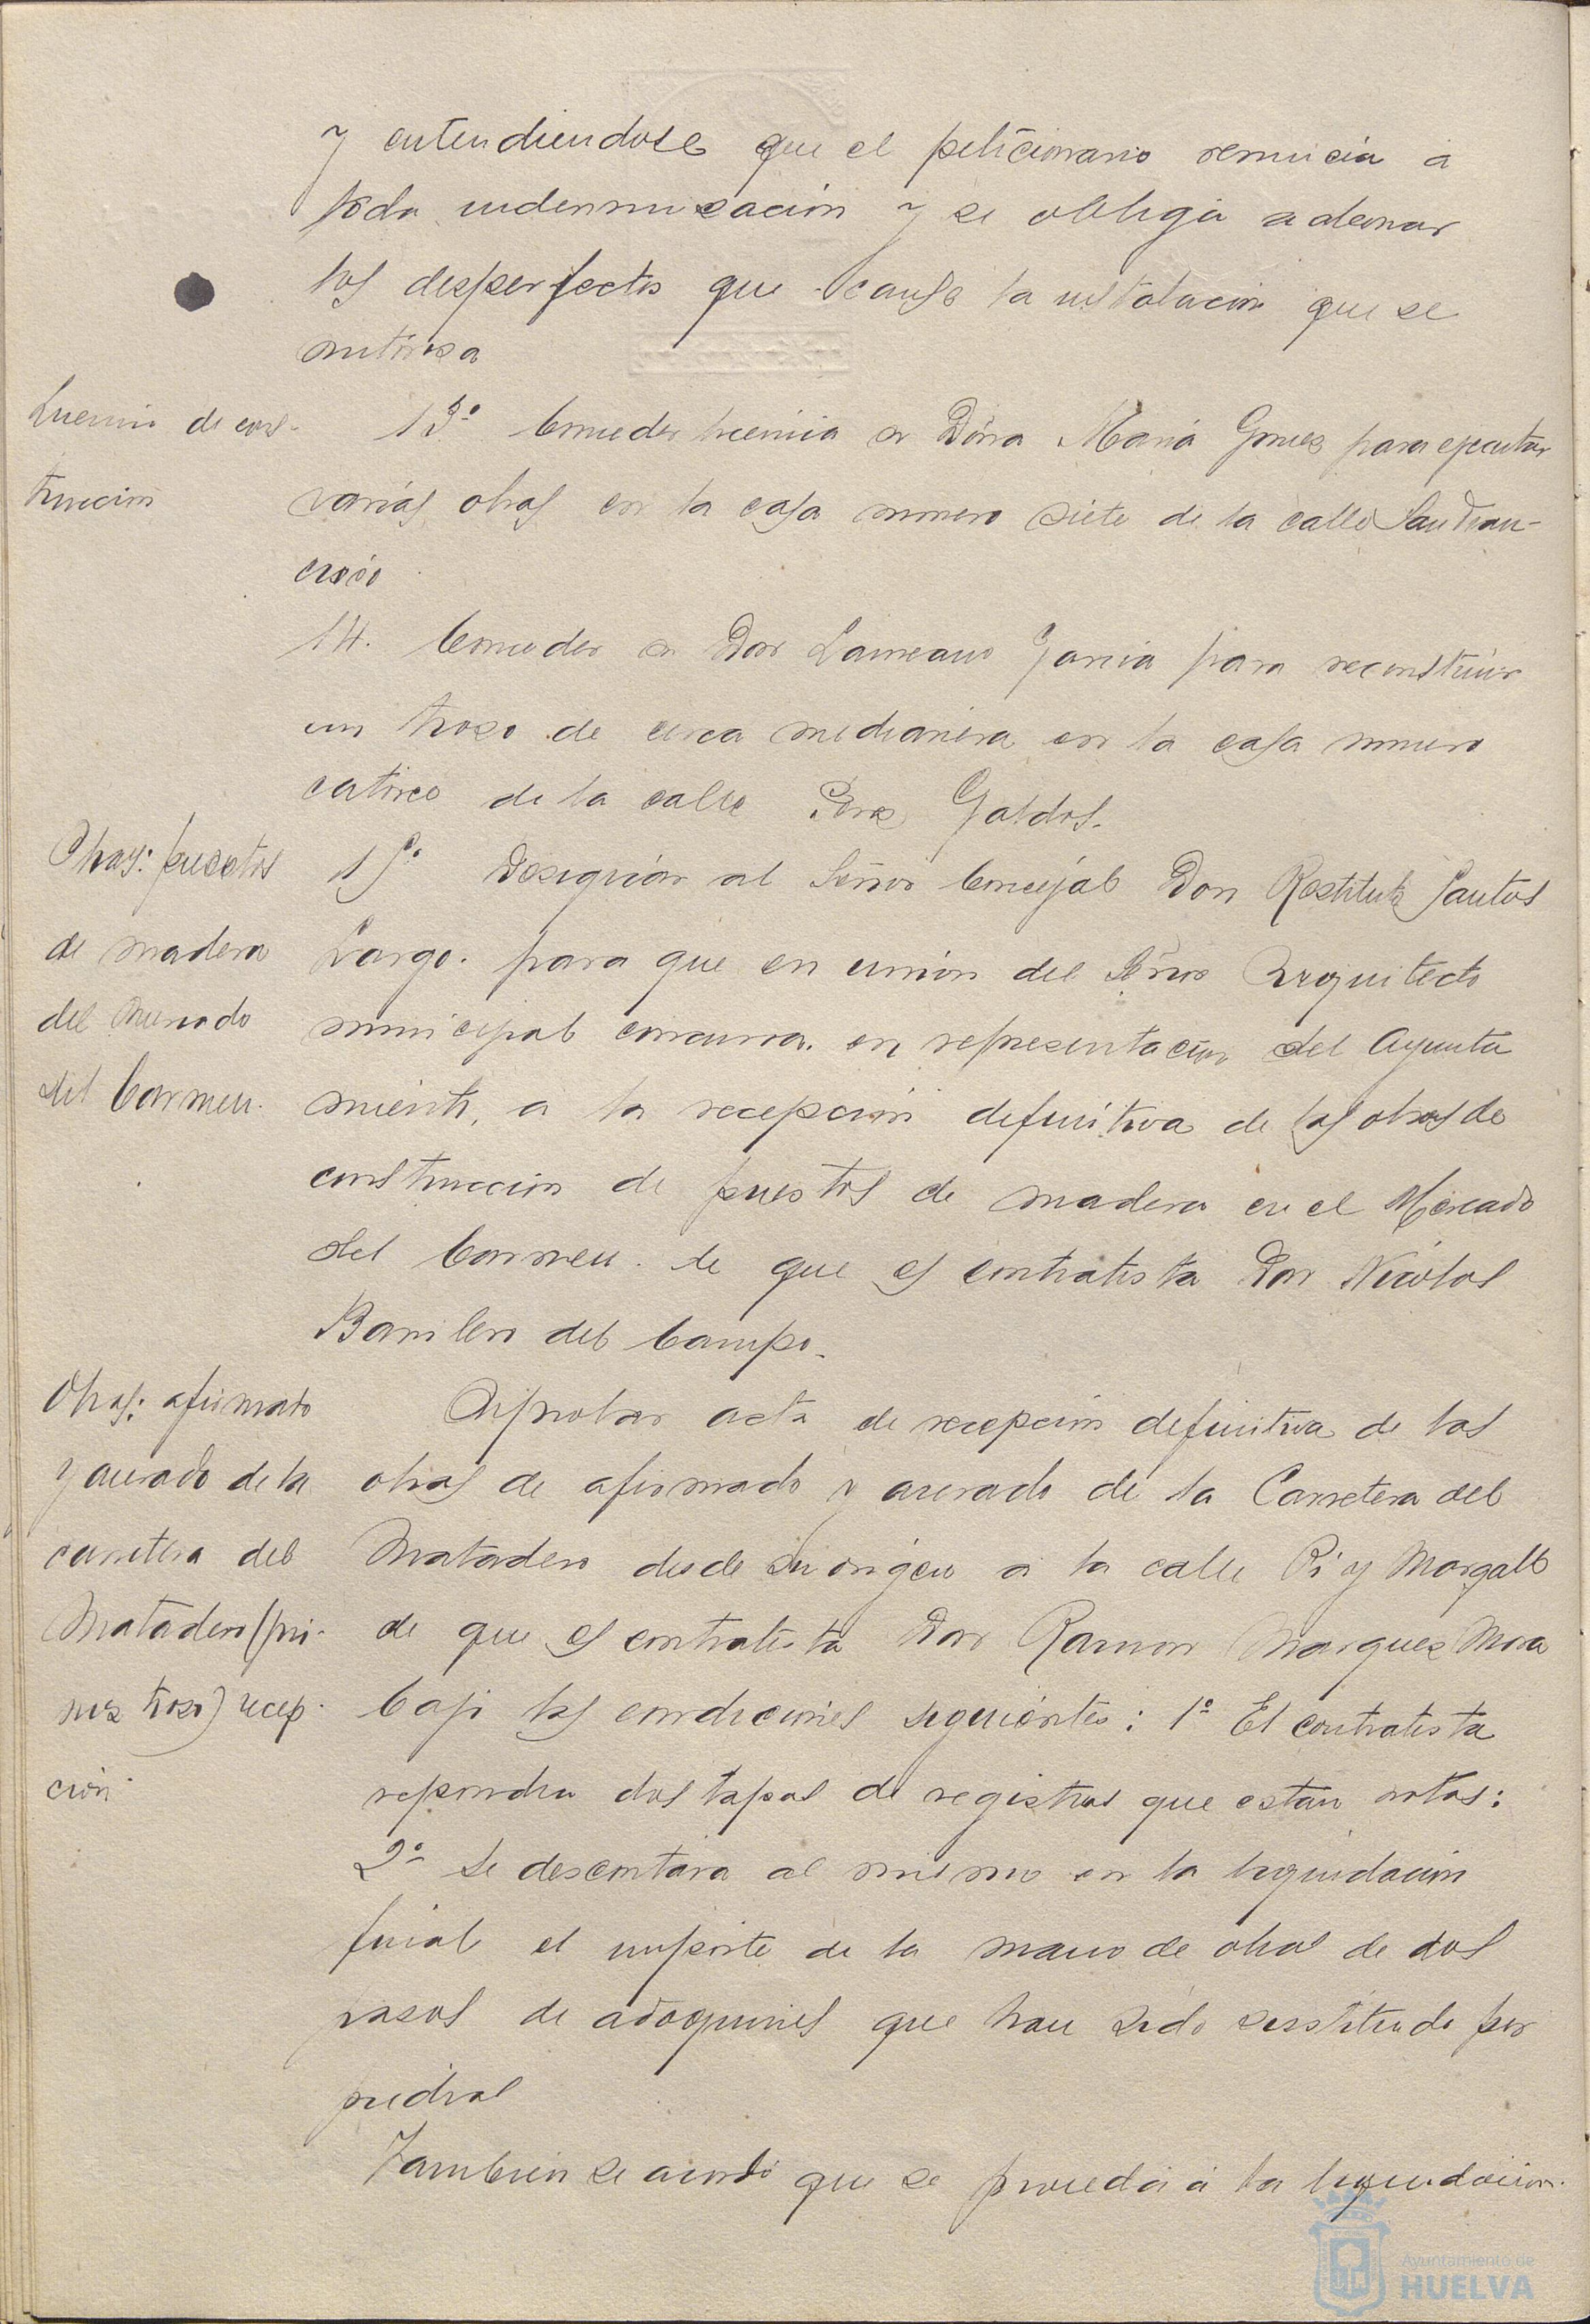 y entendiendose que el peticionario renuncia a
toda indemnizacion y se obliga a abonar
los desperfectos que cause la instalacion que se
autoriza
Licencia de cons-
truccion
13º Conceder licencia a Doña Maria Gomez para ejecutar
varias obras en la casa numero siete de la calle San Fran-
cisco
14. Conceder a Don Laureano Garcia para reconstruir
un trozo de cerca medianera en la casa numero
catorce de la calle Perez Galdos.
Obras: puestos
de madera
del Mercado
del Carmen.
15º Designar al Señor Concejal Don Restituto Santos
Largo. para que en union del Señor Arquitecto
municipal concurra. en representacion del Ayunta
miento, a la recepcion definitiva de las obras de
construccion de puestos de madera en el Mercado
del Carmen. de que es contratista Don Nicolas
Barrilero del Campo.
Obras: afirmado
y acerado de la
carretera del
Matadero (pri-
mer trozo) recep-
ción.
Aprobar acta de recepcion definitiva de las
obras de afirmado y acerado de la Carretera del
Matadero desde su origen a la calle Pi y Margall
de que es contratista Don Ramon Marquez Mora
bajo las condiciones siguientes: 1º El contratista
repondra dos tapas de registros que estan rotas:
2º Se descontara al mismo en la liquidacion
final el importe de la mano de obras de dos
pasos de adoquines que han sido sustituido por
piedras
Tambien se acordó que se proceda a la liquidacion.
Ayuntamiento de
HUELVA